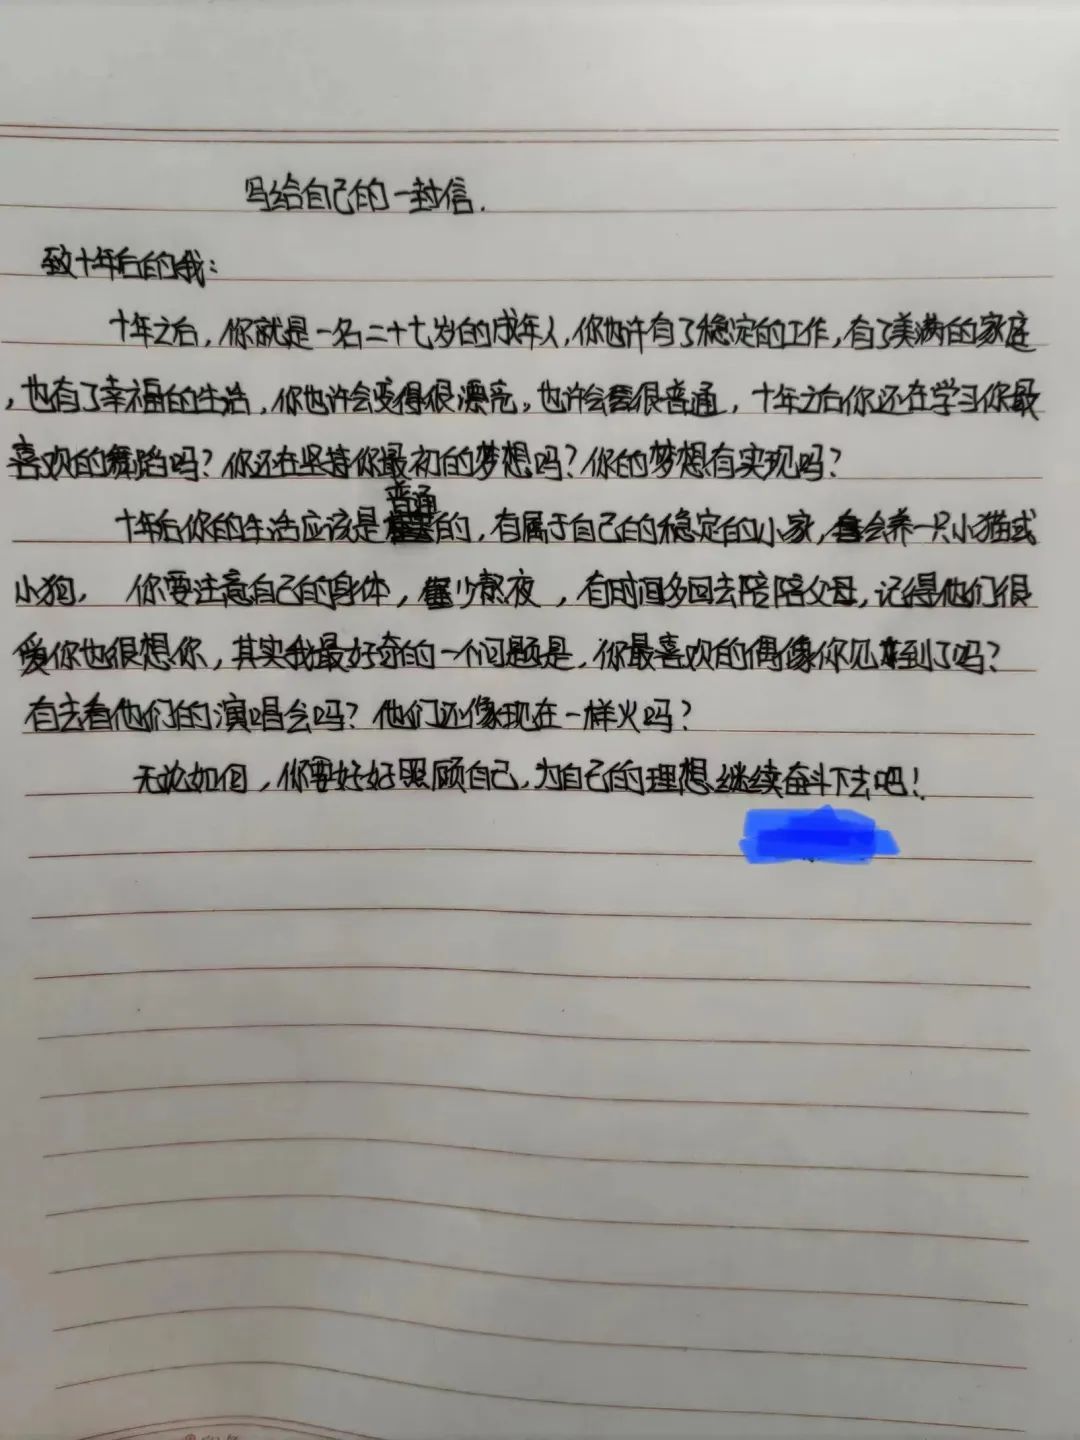 写给自己的一封信.
致十年后的我:
十年之后,你就是一名二十七岁的成年人,你也许有了稳定的工作,有了美满的家庭
,也有了幸福的生活,你也许会变得很漂亮,也许会很普通,十年之后你还在学习你最
喜欢的舞蹈吗?你还在坚持你最初的梦想吗?你的梦想有实现吗?
十年后你的生活应该是普通的,有属于自己的稳定的小家,会养一只小猫或
小狗, 你要注意自己的身体,少熬夜,有时间多回去陪陪父母,记得他们很
爱你也很想你,其实我最好奇的一个问题是,你最喜欢的偶像你见到了吗?
有去看他们的演唱会吗?他们还像现在一样火吗?
无论如何,你要好好照顾自己,为自己的理想继续奋斗下去吧!